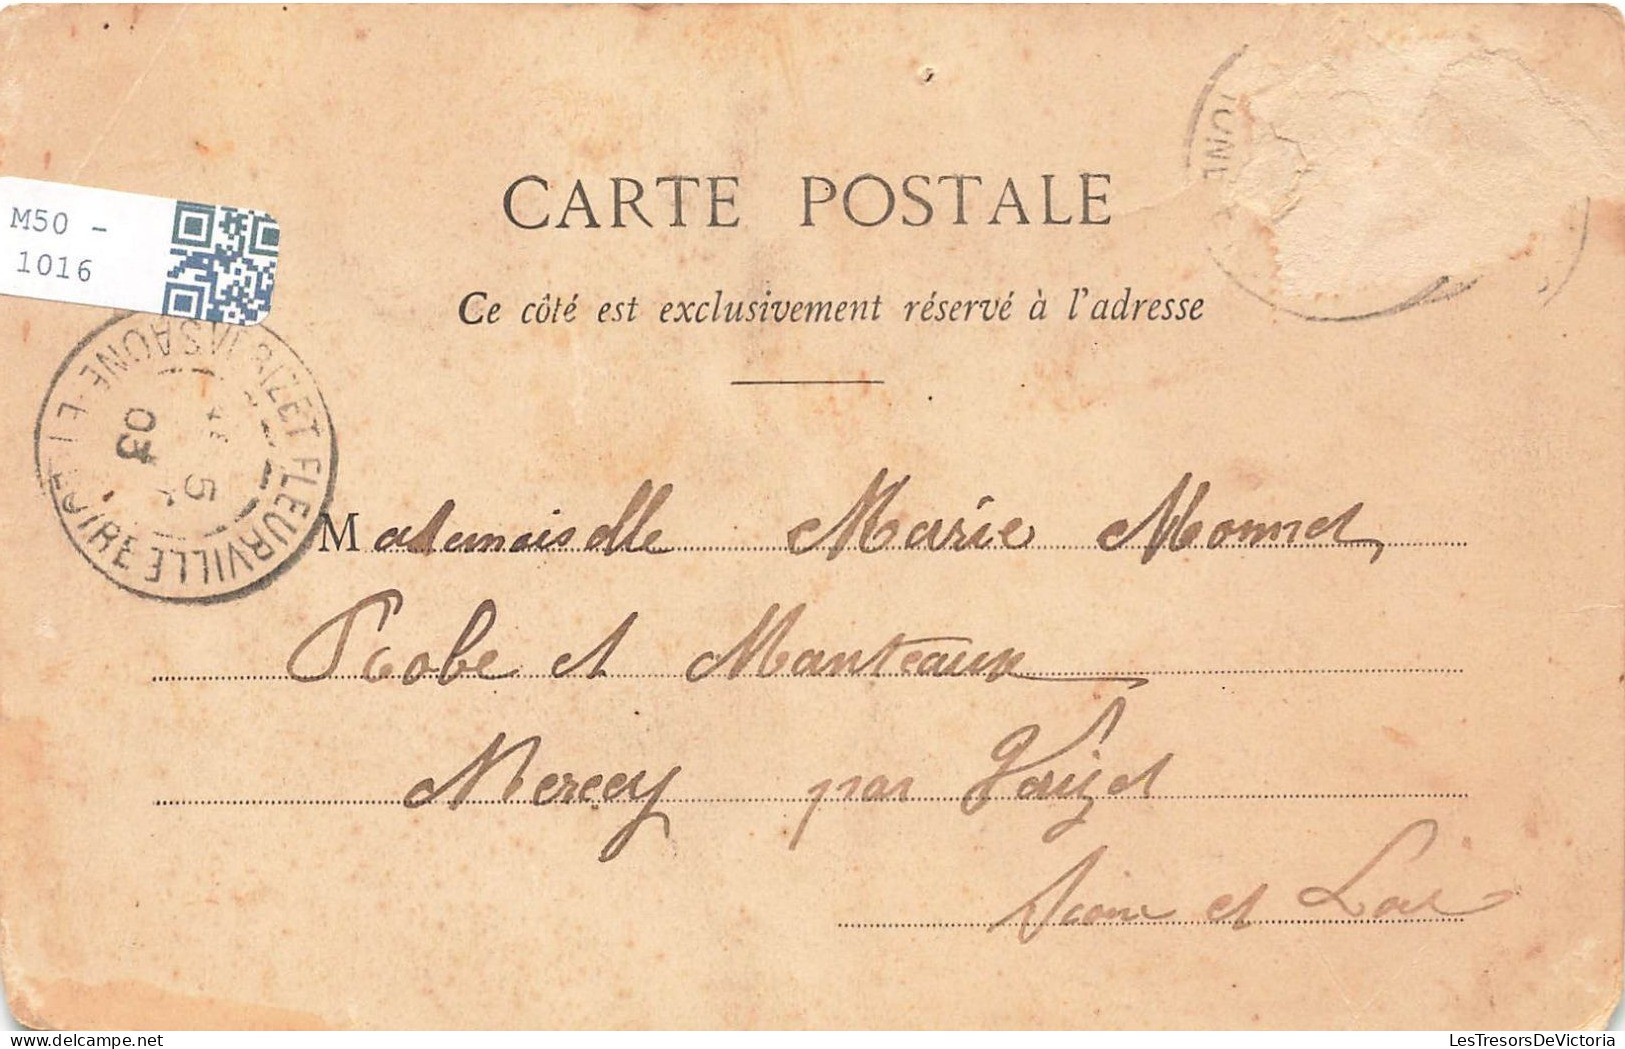 CARTE POSTALE
Ce côté est exclusivement réservé à l'adresse
M50 -
1016
FLEURVILLE
SAONE-ET-LOIRE
5
03
Mademoiselle Marie Monnet,
Robe et Manteaux
Mercey par
Saône et Loire
LesTresorsDeVictoria.delcampe.net